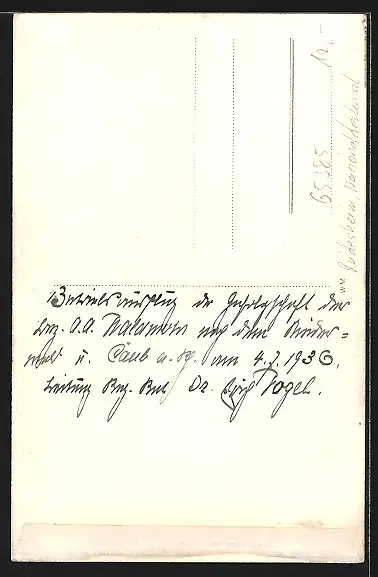 Betriebsausflug der Gefolgschaft der
Bez. D.A. nach dem Nieder=
wald u. Caub a. Rh. am 4.7.1936.
Leitung Dr. Vogel.
65385
10,-
Rüdesheim, Nationaldenkmal